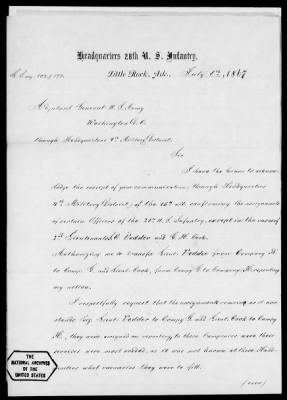 Headquarters 28th U. S. Infantry,
Little Rock, Ark., July 1867
Adjutant General U. S. Army
Washington D. C.
through Headquarters 4th Military District.
Sir
I have the honor to acknow-
ledge the receipt of your communication, through Headquarters
4th Military District, of the 15th confirming the assignments
of certain Officers of the 28th U. S. Infantry, except in the cases of
2nd Lieutenants Vedder and Cook.
Authorizing me to transfer Lieut. Vedder from Company H
to Comp. G. and Lieut. Cook, from Comp. G. to Company H. reporting
my action.
I respectfully request that the assignments remain as it now
stands (viz: Lieut. Vedder to Company G. and Lieut. Cook to Company
H.), they were assigned on reporting to these Companies where their
services were most needed, as it was not known at these Head-
quarters what vacancies they were to fill.
(over)
THE
NATIONAL ARCHIVES
OF THE
UNITED STATES